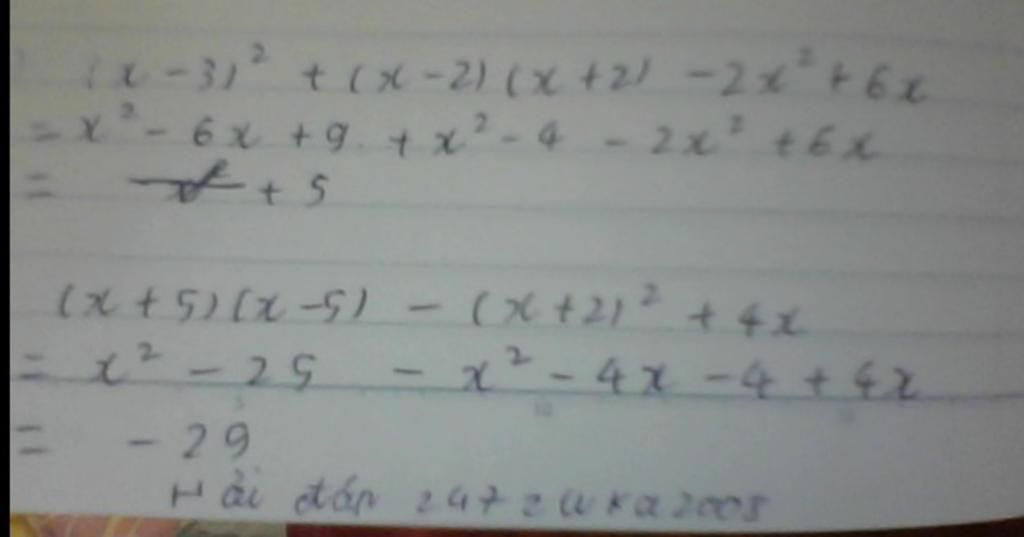 (x - 3)² + (x - 2)(x + 2) - 2x² + 6x
= x² - 6x + 9 + x² - 4 - 2x² + 6x
= + 5
(x + 5)(x - 5) - (x + 2)² + 4x
= x² - 25 - x² - 4x - 4 + 4x
= - 29
Hỏi đáp 247